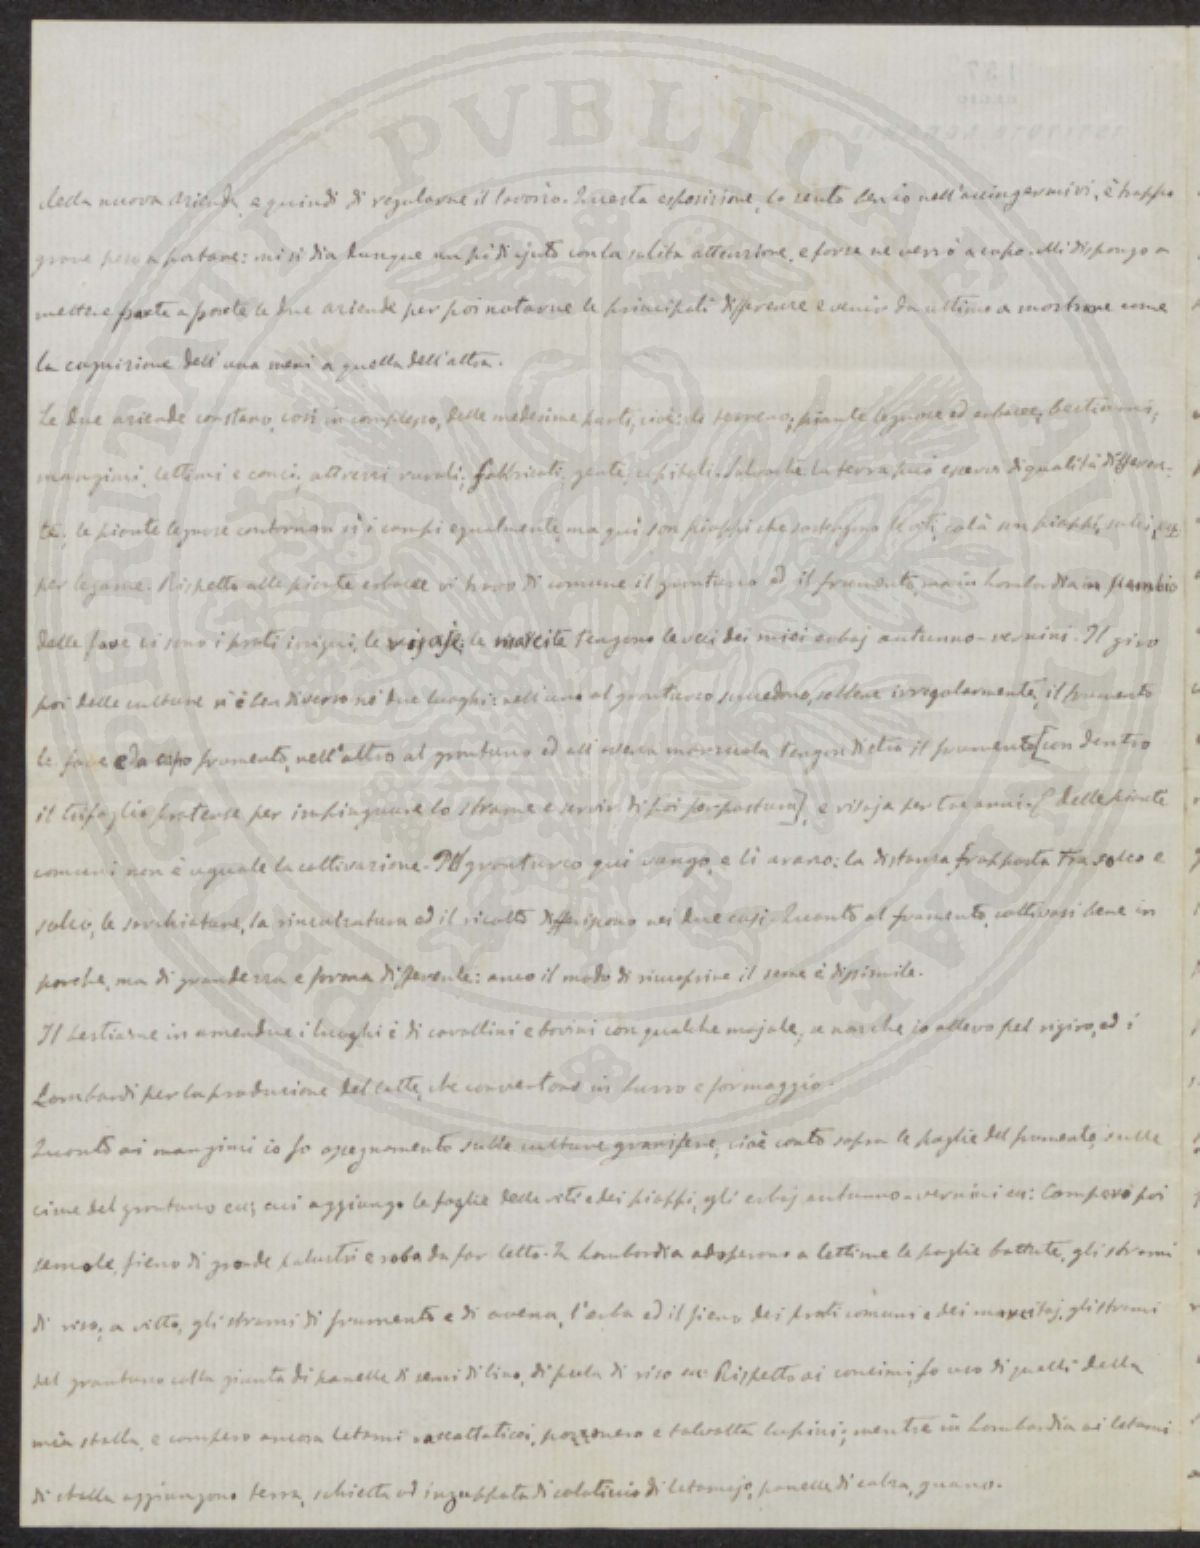 della nuova azienda, e quindi di regolarne il lavoro. Questa esposizione, lo sento ben io nell'accingermivi, è troppo
grave peso a portare: mi si dia dunque un pò di ajuto con la solita attenzione, e forse ne verrò a capo. Mi dispongo a
mettere parte a parte le due aziende per poi notarne le principali differenze e venir da ultimo a mostrare come
la cognizione dell'una meni a quella dell'altra.
Le due aziende constano, così in complesso, delle medesime parti, cioè: di terreno; piante legnose ed erbacee; bestiami;
mangimi, lettimi e conci; attrezzi rurali; fabbricati; gente; capitali. Salvochè la terra può essere di qualità differen-
te; le piante legnose contornan sì i campi egualmente ma qui son pioppi che sostengono le viti, colà son pioppi, salci,
per legame. Rispetto alle piante erbacee vi trovo di comune il granturco ed il frumento, ma in Lombardia in scambio
delle fave vi sono i prati irrigui, le risaje; le marcite tengono le veci dei miei erbaj autunno-vernini. Il giro
poi delle culture si è ben diverso ne' due luoghi: nell'uno al granturco succedono, sebbene irregolarmente, il frumento
le fave e da capo frumento, nell'altro al granturco ed all'avena marzuola tengon dietro il frumento [con dentro
il trifoglio pratense per impinguare lo strame e servir di poi per pastura], e risaja per tre anni. E delle piante
comuni non è uguale la coltivazione. Pel granturco qui vango, e lì arano: la distanza frapposta tra solco e
solco, le sarchiature, la rincalzatura ed il ricolto differiscono nei due casi. Quanto al frumento, coltivasi bene in
porche, ma di grandezza e forma differente: anco il modo di ricoprire il seme è dissimile.
Il bestiame in amendue i luoghi è di cavallini e bovini con qualche majale, se non che io allevo pel rigiro, ed i
Lombardi per la produzione del latte, che convertono in burro e formaggio.
Quanto ai mangimi io fo assegnamento sulle culture granifere, cioè conto sopra le paglie del frumento, sulle
cime del granturco ecc; cui aggiungo le foglie delle viti e dei pioppi, gli erbaj autunno-vernini ecc: Compero poi
semole, fieno di prode palustri e roba da far letto. In Lombardia adoperono a lettime le paglie battute, gli strami
di riso; a vitto, gli strami di frumento e di avena, l'erba ed il fieno dei prati comuni e dei marcitoj, gli strami
del granturco colla giunta di panelle di semi di lino, di pula di riso ecc. Rispetto ai concimi, fo uso di quelli della
mia stalla, e compero ancora letami raccattaticci, pozzonero e talvolta lupini; mentre in Lombardia ai letami
di stalla aggiungono terra, schietta od inzuppata di colaticcio di letamajo, panelle di colza, guano.